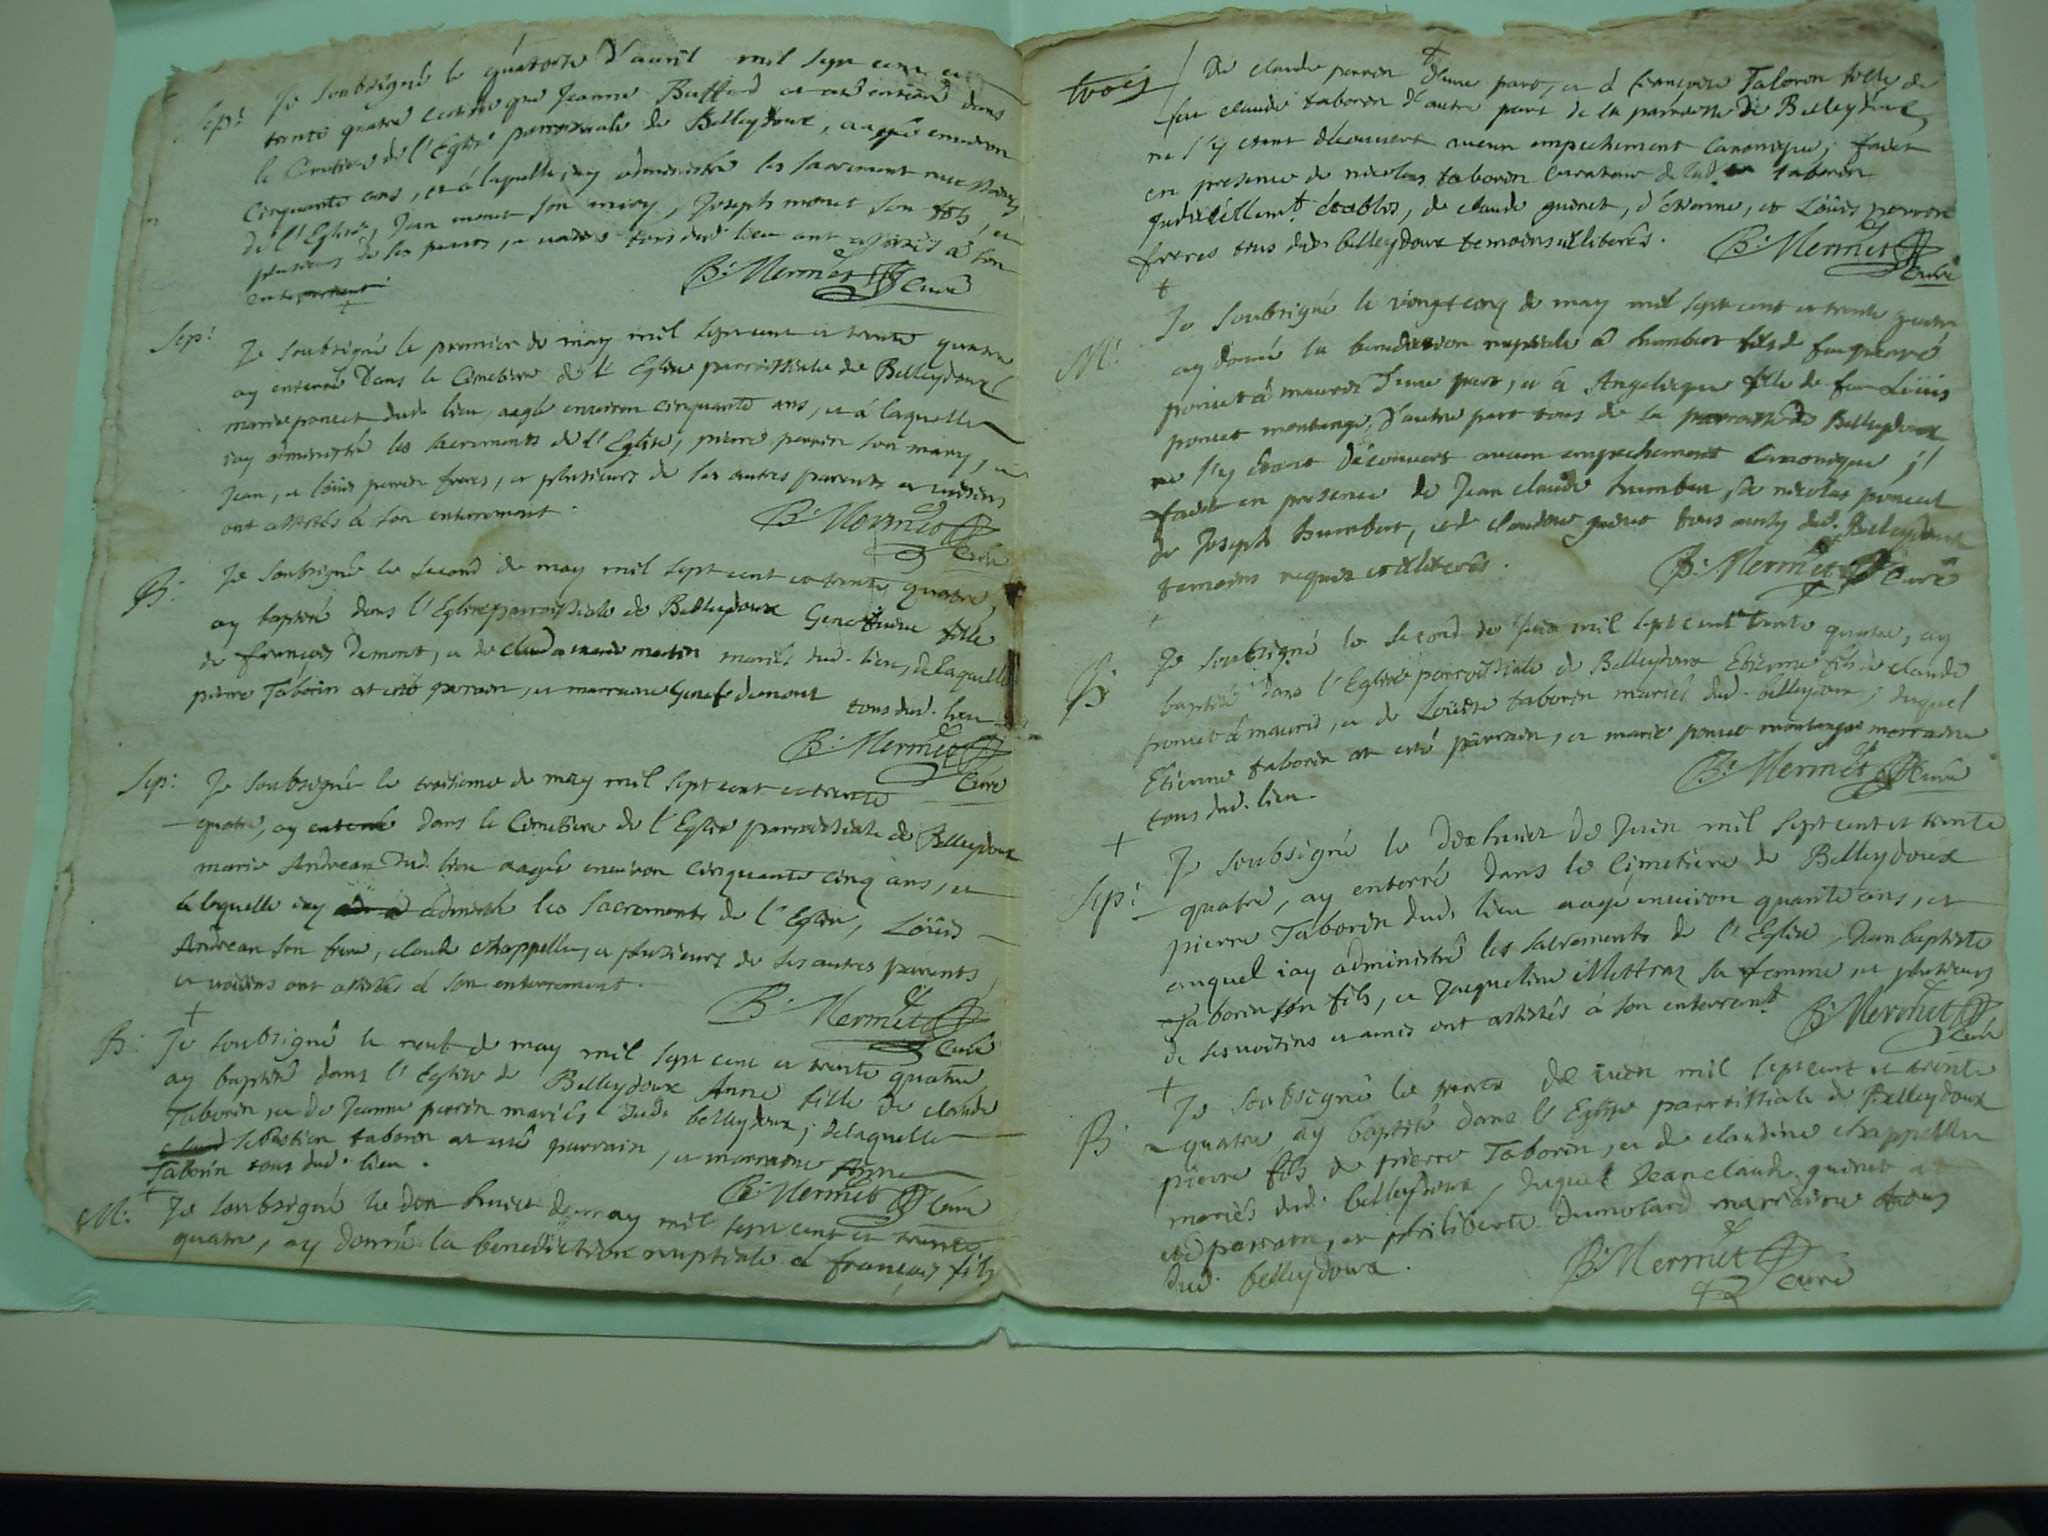 Sep: Je soubsigné le quatorze d'avril mil sept cent et
trente quatre que Jeanne Buffard at esté dans
le Cimetiere de l'Eglise parroissiale de Belleydoux, aagée environ
Cinquante ans, et à laquelle iay administré les sacrement
de l'Eglise, Jean monet son mary, Joseph monet son fils, et
plusieurs de ses parens, et voisins tous dud. lieu ont assistés à son
enterrement.
B: Mermet Curé
Sep: Je soubsigné le premier de may mil sept cent et trente quatre
ay enterré Dans le Cimetiere de l'Eglise parroissiale de Belleydoux
marie poncet dud. lieu, aagée environ cinquante ans, et à laquelle
iay administré les sacrements de l'Eglise, pierre perrin son mary, et
Jean, et loüis perrin freres, et plusieurs de ses autres parents et voisins
ont assistés à son enterrement.
B: Mermet Curé
B: Je soubsigné le second de may mil sept cent et trente quatre,
ay baptisé dans l'Eglise parroissiale de Belleydoux fille
de françois Demont, et de marie mariés dud. lieu, de laquelle
pierre Taborin at esté parrain, et marraine demont tous dud. lieu
B: Mermet
Curé
Sep: Je soubsigné le troisieme de may mil sept cent et trente
quatre, ay enterré dans le Cimetiere de l'Eglise parroissiale de Belleydoux
marie Andrean Dud. lieu aagée environ cinquante cinq ans, et
à laquelle iay les Sacrements de l'Eglise, Loüis
Andrean son frere, claude chappellu, et plusieurs de ses autres parents,
et voisins ont assistés à son enterrement.
B: Mermet Curé
B: Je soubsigné le neuf de may mil sept cent et trente quatre
ay baptisé dans l'Eglise de Belleydoux Anne fille de claude
Taborin, et de Jeanne perrin mariés dud. belleydoux; de laquelle
sebastien taborin at esté parrain, et marraine Anne
Taborin tous dud. lieu.
B: Mermet Curé
M: Je soubsigné le dix huict de may mil sept cent et trente
quatre, ay donné la benediction nuptiale à françois fils
trois
De claude perrin d'une part, et à françoise Taborin fille de
feu claude taborin d'autre part de la parroisse de Belleydoux,
ne s'y etant découvert aucun empechement Canonique; faict
en presence de nicolas taborin curateur de lad. taborin
etablis, de claude guinet, d'etienne, et Loüis perrin
freres tous dud. belleydoux temoins illiterés.
B: Mermet
Curé
M: Je soubsigné le vingt cinq de may mil sept cent et trente quatre
ay donné la benediction nuptiale à humbert fils de feu
poncet à mauris d'une part, et à Angelique fille de feu Loüis
poncet montange, d'autre part tous de la parroisse de Belleydoux
ne s'y etant découvert aucun empechement Canonique;
faict en presence de Jean claude humbert, de nicolas poncet
de Joseph humbert, et de claudine guinet tous dud. Belleydoux
temoins requis et illiterés.
B: Mermet Curé
B: Je soubsigné le second de Juin mil sept cent trente quatre, ay
baptisé dans l'Eglise parroissiale de Belleydoux Etienne fils à claude
poncet à mauris, et de Loüise taborin mariés dud. belleydoux; duquel
Etienne taborin at esté parrain, et marie poncet montange marraine
tous dud. lieu.
B: Mermet Curé
Sep: Je soubsigné le dix huict de Juin mil sept cent et trente
quatre, ay enterré dans le Cimetiere de Belleydoux
pierre Taborin dud. lieu aagé environ quarante ans, et
auquel iay administré les sacrements de l'Eglise, Jean baptiste
Taborin son fils, et Jacqueline Mettraz sa femme, et plusieurs
de ses voisins et amis ont assistés à son enterremt.
B: Mermet
Curé
B: Je soubsigné le trente de iuin mil sept cent et trente
quatre ay baptisé dans l'Eglise parroissiale de Belleydoux
pierre fils de pierre Taborin, et de claudine chappellu
mariés dud. belleydoux, duquel Jean claude guinet at
eté parrain, et philiberte dumolard marraine tous
dud. belleydoux.
B: Mermet
Curé